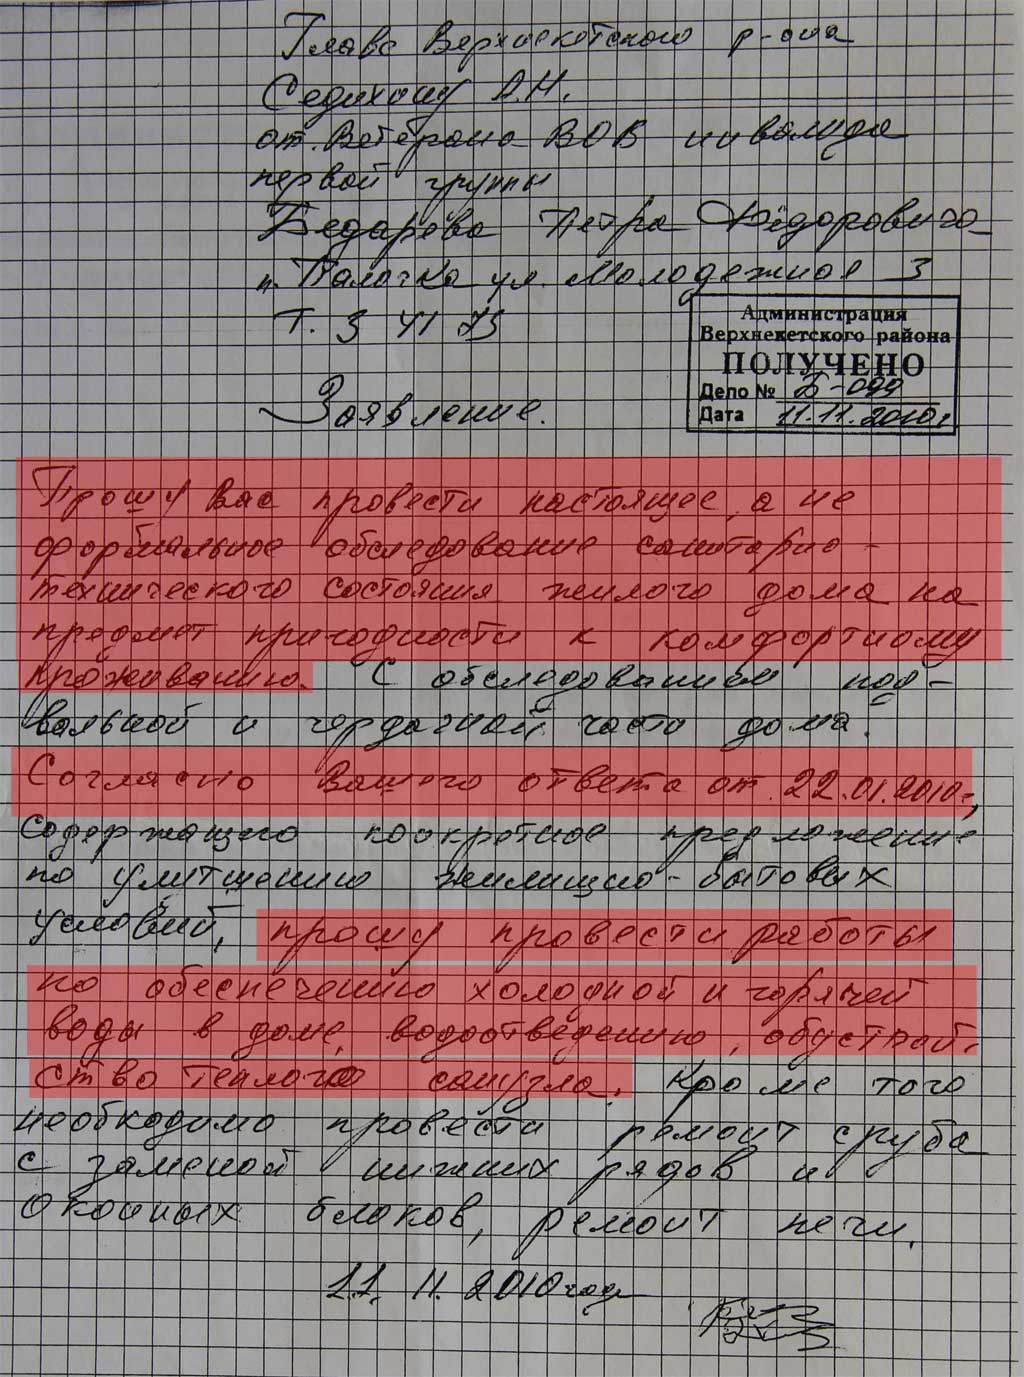 Главе Верхнекетского р-она
Седихину А.Н.
от. Ветерана ВОВ инвалида
первой группы
Бедарева Петра Фёдоровича
п. Палочка ул. Молодежная 3
Т. 3 41 75
Администрация
Верхнекетского района
ПОЛУЧЕНО
Дело № Б-099
Дата 11.11.2010г
Заявление.
Прошу Вас провести настоящее, а не
формальное обследование санитарно-
технического состояния жилого дома на
предмет пригодности к комфортному
проживанию. С обследованием под-
вальной и чердачной части дома.
Согласно Вашего ответа от 22.01.2010г.,
содержащего конкретное предложение
по улутшению жилищно-бытовых
условий, прошу провести работы
по обеспечению холодной и горячей
воды в доме, водоотведению, обустрой-
ство теплого санузла. Кроме того
необходимо провести ремонт сруба
с заменой нижних рядов и
оконных блоков, ремонт печи.
11. 11. 2010 год